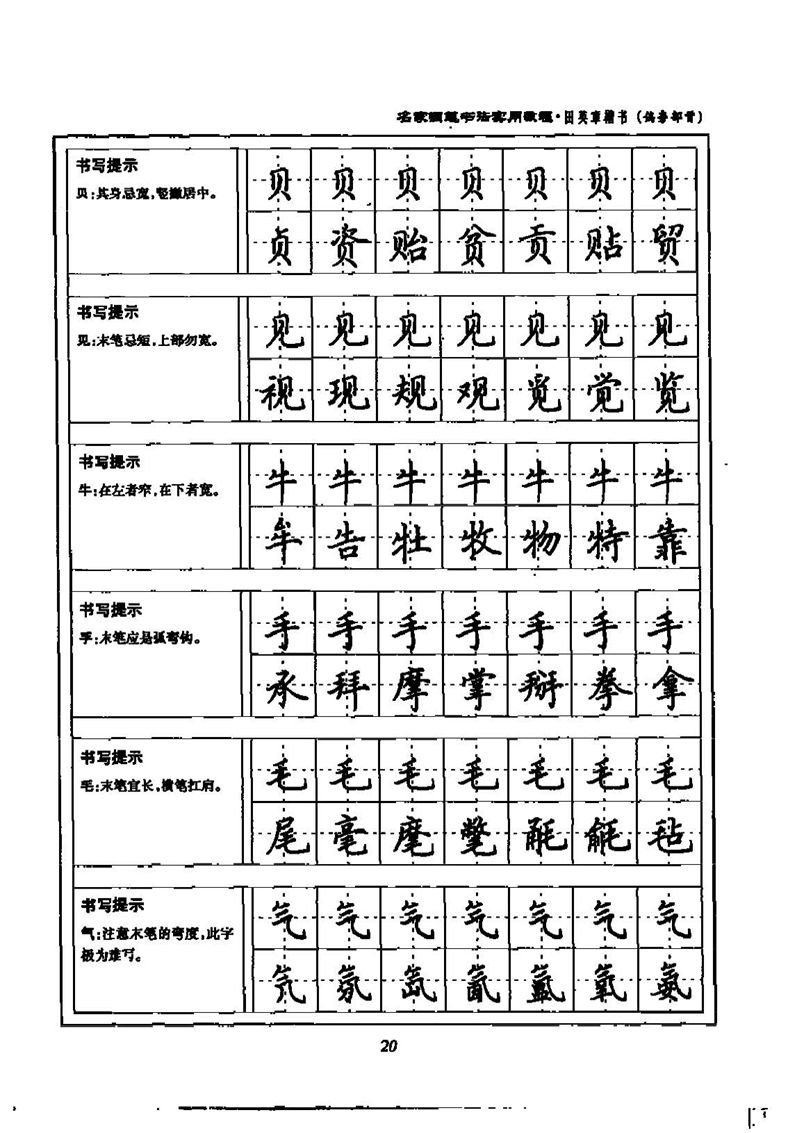 名家钢笔书法实用教程·田英章楷书（偏旁部首）
书写提示
贝:其身忌宽,竖撇居中。
贝 贝 贝 贝 贝 贝 贝
贞 资 贻 贫 贡 贴 贸
书写提示
见:末笔忌短,上部勿宽。
见 见 见 见 见 见 见
视 现 规 观 觅 觉 览
书写提示
牛:在左者窄,在下者宽。
牛 牛 牛 牛 牛 牛 牛
牟 告 牡 牧 物 特 靠
书写提示
手:末笔应是弧弯钩。
手 手 手 手 手 手 手
承 拜 摩 掌 掰 拳 拿
书写提示
毛:末笔宜长,横笔扛肩。
毛 毛 毛 毛 毛 毛 毛
尾 毫 麾 氅 毡
书写提示
气:注意末笔的弯度,此字
极为难写。
气 气 气 气 气 气 气
氛 氙 氤 氲 氧 氨
20